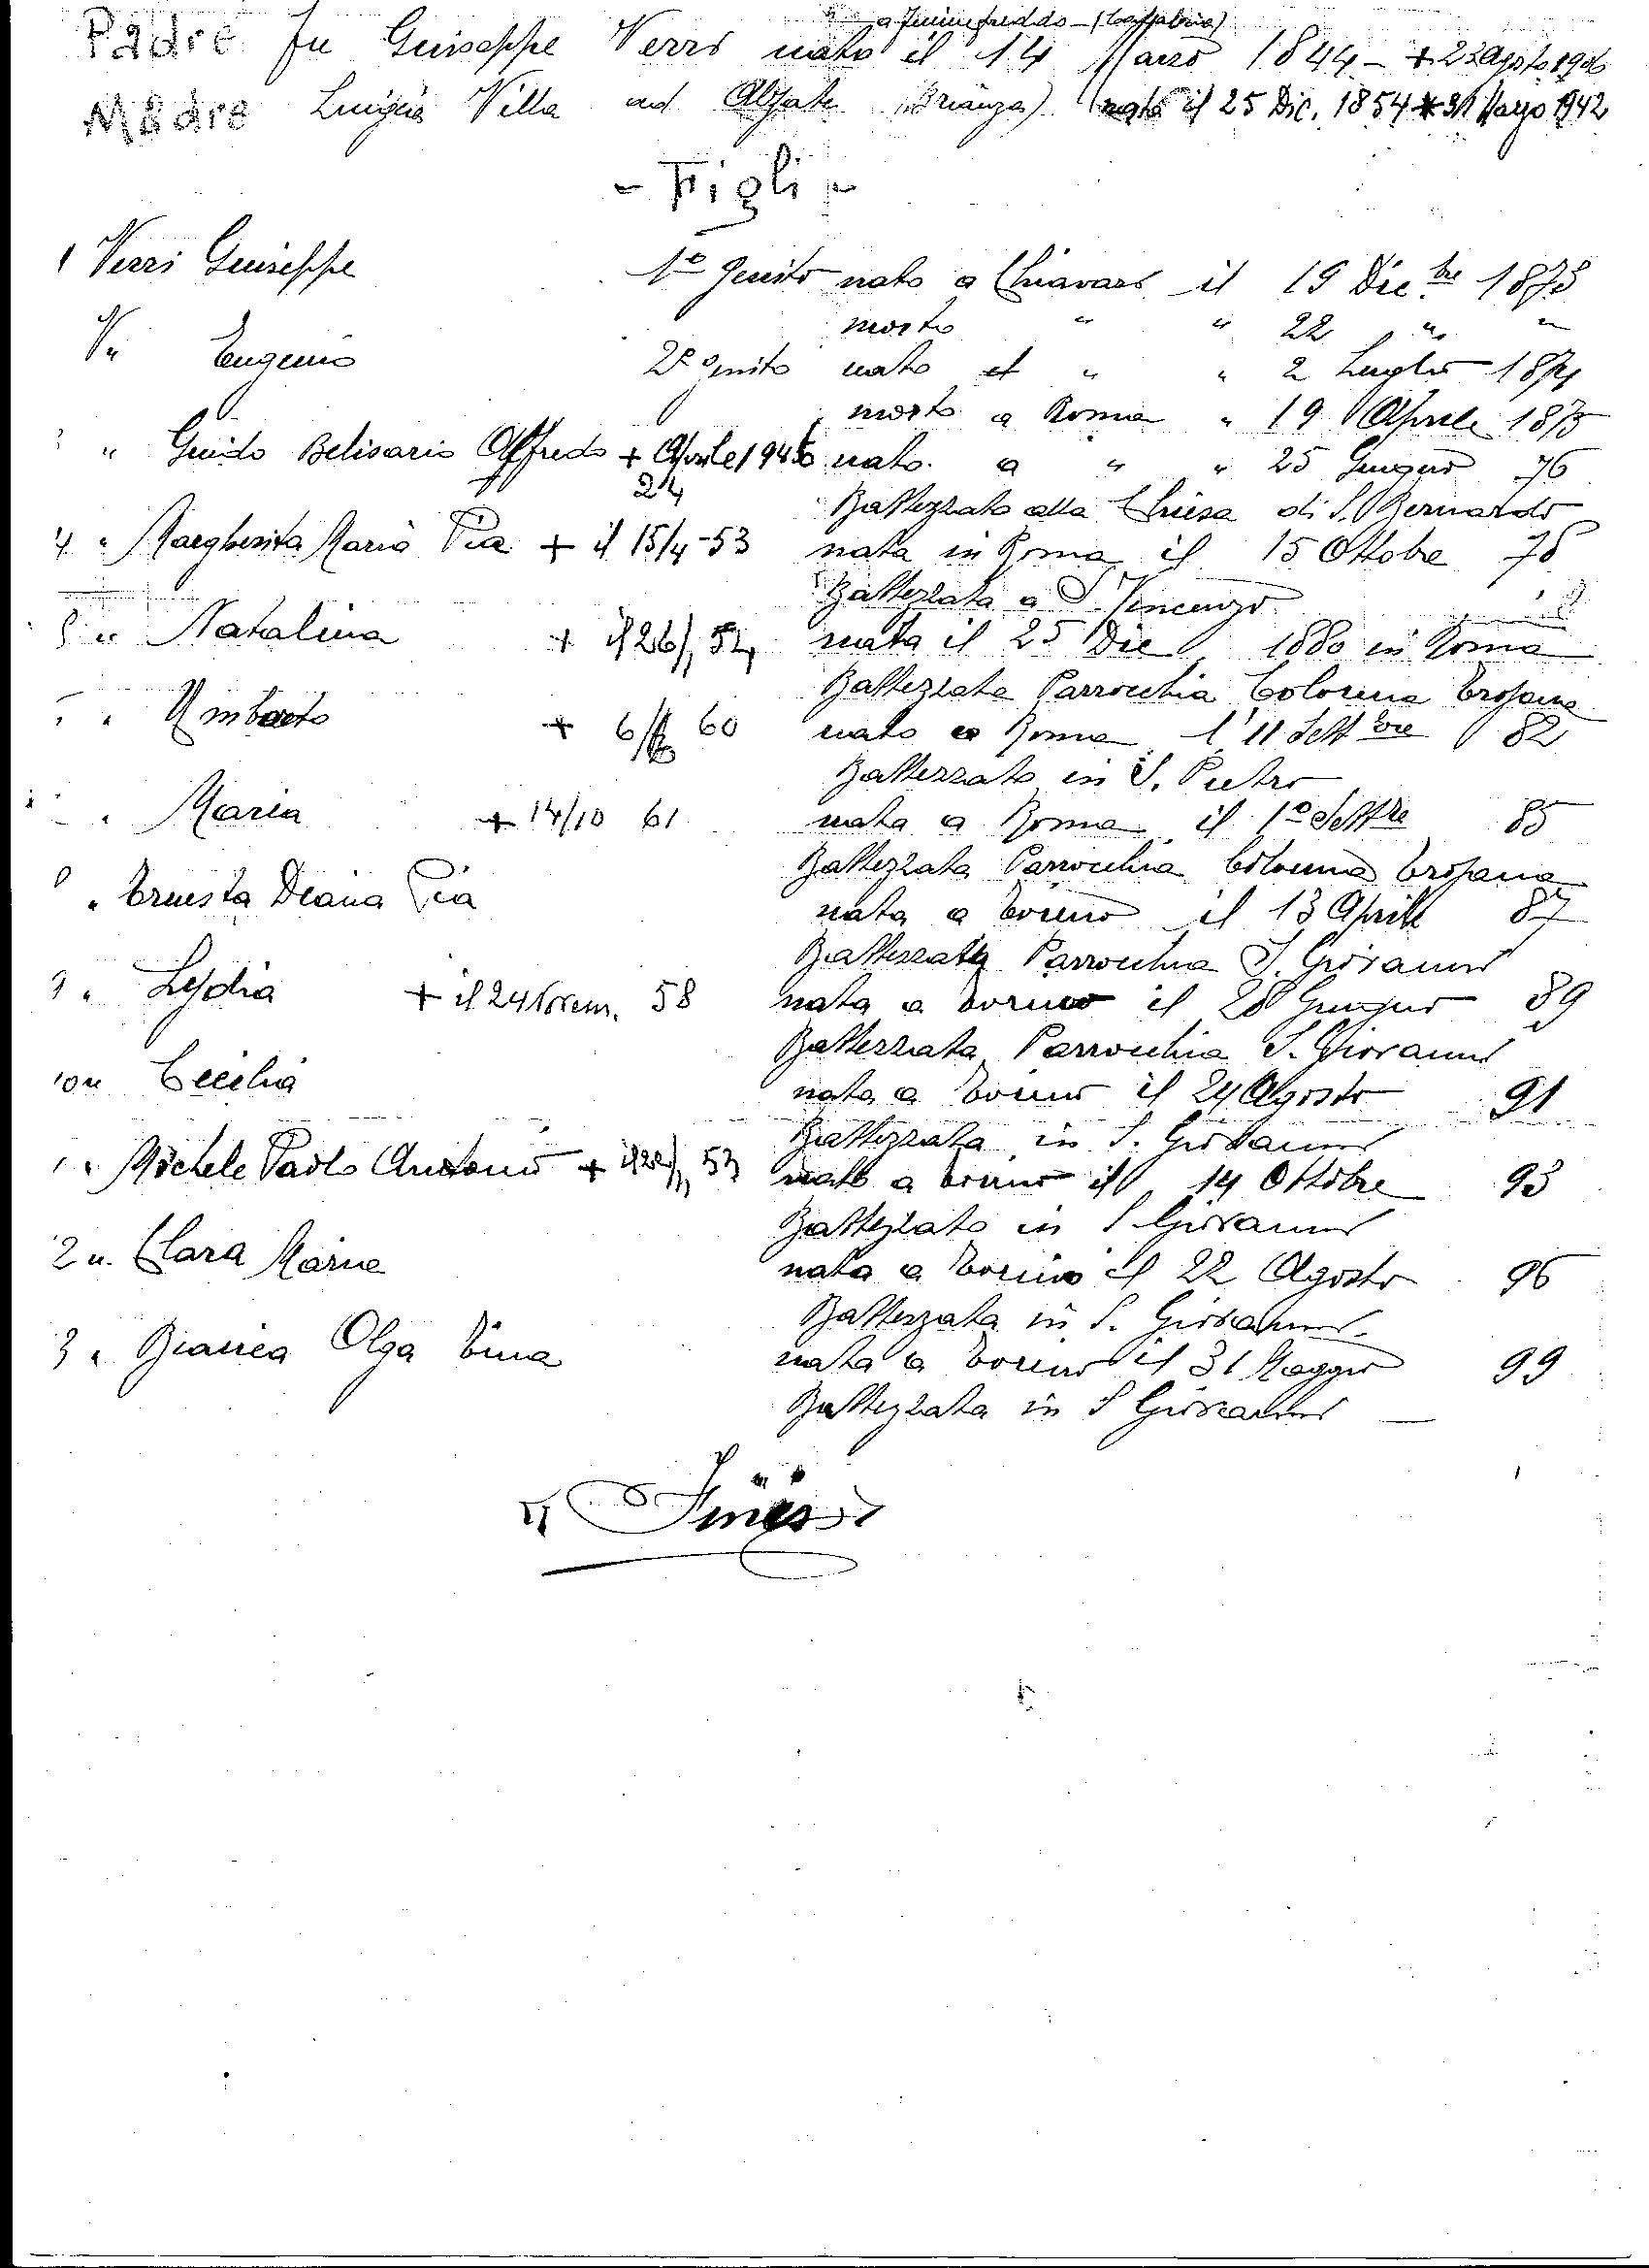 a Fiumefreddo - (Calabria)
Padre fu Giuseppe Verri nato il 14 Marzo 1844 - + 22 Agosto 1906
Madre Luigia Villa ad Alzate (Brianza) (nata il 25 Dic. 1854 * 31 Marzo 1942
- Figli -
1 Verri Giuseppe 1º genito nato a Chiavari il 19 Dic.bre 1873
morto " " 22 " "
V" Eugenio 2º genito nato il " " 2 Luglio 1874
morto a Roma " 19 Aprile 1875
" Guido Belisario Alfredo + Aprile 1945 nato a " " 25 Giugno 76
24
Battezzato alla Chiesa di S. Bernardo
4 " Margherita Maria Pia + il 15/4-53 nata in Roma il 15 Ottobre 78
Battezzata a S. Vincenzo
5 " Natalina + il 26/, 54 nata il 25 Dic 1880 in Roma
Battezzata Parrocchia Colonna Trojana
" Umberto + 6/ 60 nato a Roma l'11 Settbre 82
Battezzato in S. Pietro
" Maria + 14/10 61 nata a Roma il 1º Settre 85
Battezzata Parrocchia Colonna Trojana
" Ernesta Diana Pia nata a Torino il 13 Aprile 87
Battezzata Parrocchia S. Giovanni
9 " Lydia + il 24 Novem. 58 nata a Torino il 28 Giugno 89
Battezzata Parrocchia S. Giovanni
10 " Cecilia nata a Torino il 24 Agosto 91
Battezzata in S. Giovanni
1 " Michele Paolo Antonio + il 22/11 53 nato a Torino il 14 Ottobre 93
Battezzato in S Giovanni
12 " Clara Maria nata a Torino il 22 Agosto 96
Battezzata in S. Giovanni
3 " Bianca Olga Tina nata a Torino il 31 Maggio 99
Battezzata in S Giovanni —